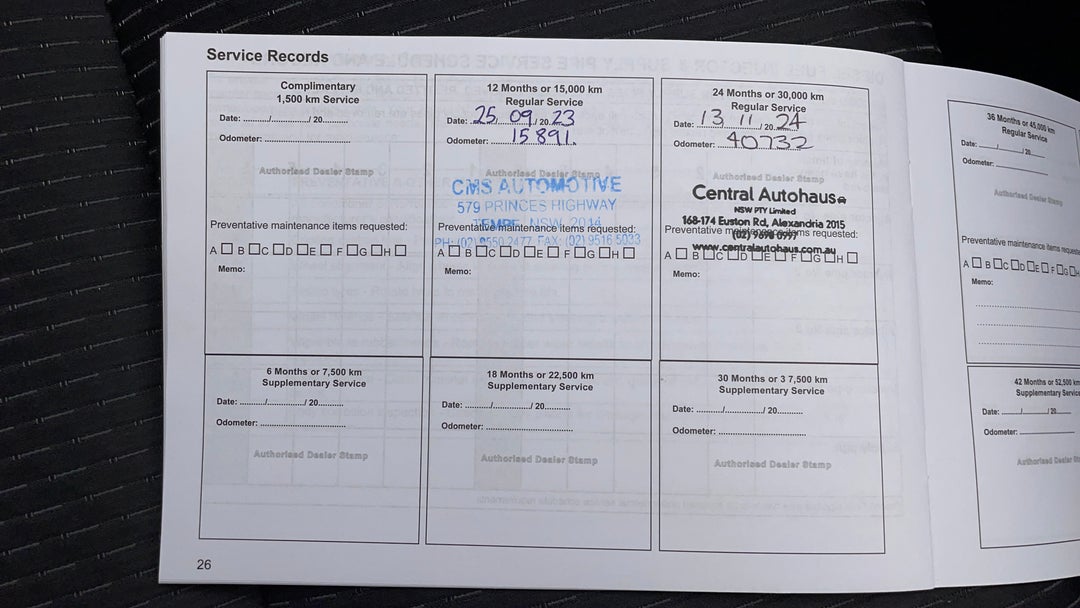 Service Records
Complimentary
1,500 km Service
Date: ......../............/ 20.........
Odometer: ..............................
Authorised Dealer Stamp
Preventative maintenance items requested:
A B C D E F G H
Memo:
12 Months or 15,000 km
Regular Service
Date: 25 / 09 / 20 23
Odometer: 15891.
Authorised Dealer Stamp
CMS AUTOMOTIVE
579 PRINCES HIGHWAY
TEMPE NSW 2014
Preventative maintenance items requested:
PH: (02) 9550 2477 FAX: (02) 9516 5033
A B C D E F G H
Memo:
24 Months or 30,000 km
Regular Service
Date: 13 / 11 / 20 24
Odometer: 40732
Authorised Dealer Stamp
Central Autohaus
NSW PTY Limited
168-174 Euston Rd, Alexandria 2015
Preventative maintenance items requested:
(02)
www.centralautohaus.com.au
A B C D E F G H
Memo:
36 Months or 45,000 km
Regular Service
Date: ....../........./ 20......
Odometer: ....................
Authorised Dealer Stamp
Preventative maintenance items
A B C D E F G
Memo:
6 Months or 7,500 km
Supplementary Service
Date: ......../............/ 20.........
Odometer: ..............................
Authorised Dealer Stamp
18 Months or 22,500 km
Supplementary Service
Date: ......../............/ 20.........
Odometer: ..............................
Authorised Dealer Stamp
30 Months or 3 7,500 km
Supplementary Service
Date: ......../............/ 20.........
Odometer: ..............................
Authorised Dealer Stamp
42 Months or 52,500 km
Supplementary Service
Date: ....../........./ 20......
Odometer: ....................
Authorised Dealer
26